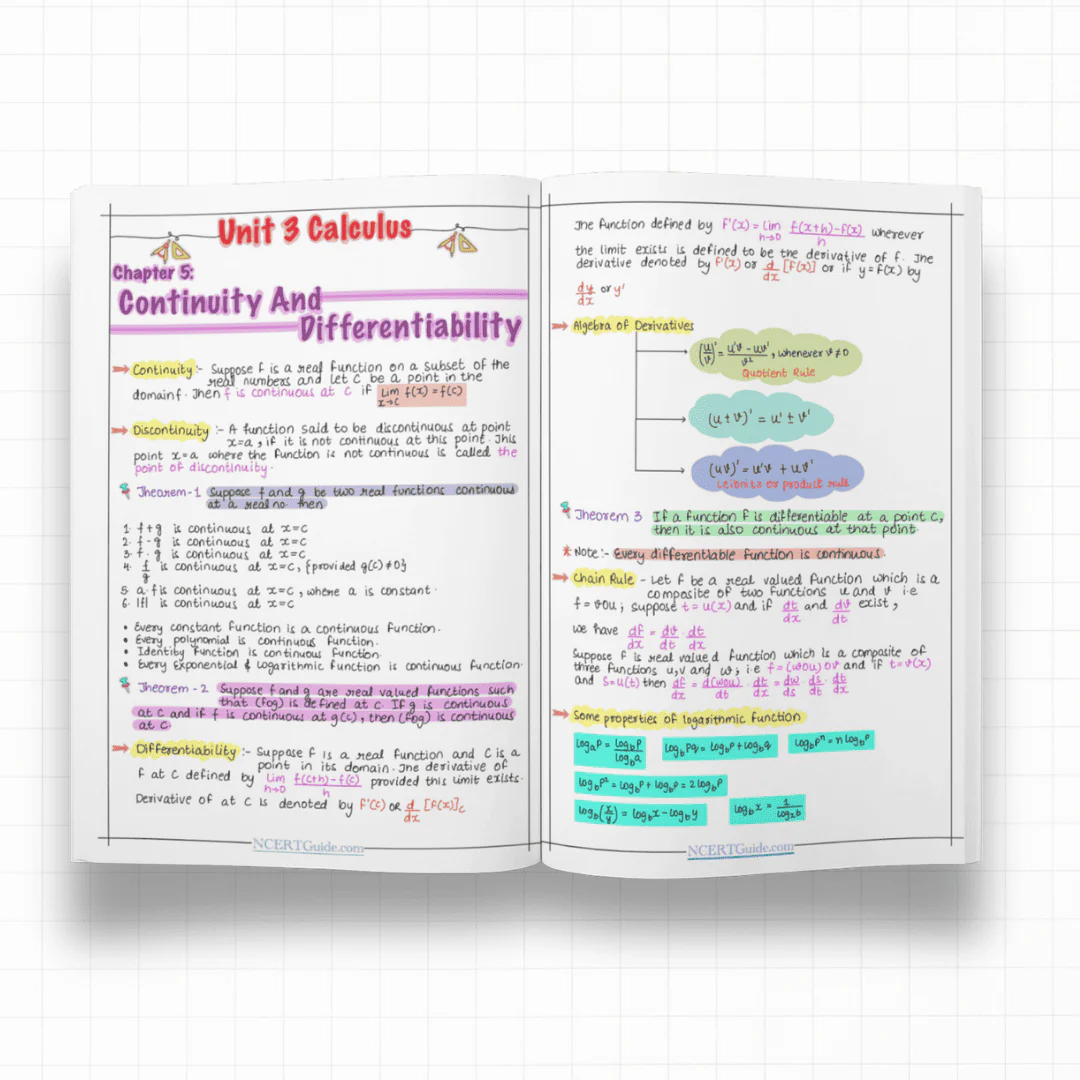 Unit 3 Calculus
Chapter 5:
Continuity And
Differentiability
Continuity :- Suppose f is a real function on a subset of the
real numbers and let C be a point in the
domain f. Then f is continuous at c if Lim x→c f(x) = f(c)
Discontinuity :- A function said to be discontinuous at point
x=a, if it is not continuous at this point. This
point x=a where the function is not continuous is called the
point of discontinuity.
Theorem-1 Suppose f and g be two real functions continuous
at a real no. then
1. f+g is continuous at x=c
2. f-g is continuous at x=c
3. f·g is continuous at x=c
4. f/g is continuous at x=c, {provided g(c) ≠0}
5. a.f is continuous at x=c, where a is constant.
6. |f| is continuous at x=c
• Every constant function is a continuous function.
• Every polynomial is continuous function.
• Identity function is continuous function.
• Every exponential & logarithmic function is continuous function.
Theorem - 2 Suppose f and g are real valued functions such
that (fog) is defined at c. If g is continuous
at c and if f is continuous at g(c), then (fog) is continuous
at c
Differentiability :- Suppose f is a real function and C is a
point in its domain. The derivative of
f at C defined by Lim h→0 f(c+h)-f(c)/h provided this limit exists.
Derivative of at C is denoted by f'(c) OR d/dx [f(x)]c
NCERTGuide.com
The function defined by f'(x) = Lim h→0 f(x+h)-f(x)/h wherever
the limit exists is defined to be the derivative of f. The
derivative denoted by f'(x) or d/dx [f(x)] or if y=f(x) by
dy/dx or y'
Algebra of Derivatives
(u/v)' = u'v - uv'/v², whenever v≠0
Quotient Rule
(u±v)' = u' ± v'
(uv)' = u'v + uv'
Leibnitz or product rule
Theorem 3 If a function f is differentiable at a point c,
then it is also continuous at that point.
* Note :- Every differentiable function is continuous.
Chain Rule - Let f be a real valued function which is a
composite of two functions u and v i.e
f = vou ; suppose t = u(x) and if dt/dx and dv/dt exist,
we have df/dx = dv/dt · dt/dx
Suppose f is real valued function which is a composite of
three functions u,v and w; i.e f = (wou) ov and if t=v(x)
and S=u(t) then df/dx = d(wou)/dt · dt/dx = dw/ds · ds/dt · dt/dx
Some properties of logarithmic function
logₐp = log_b p/log_b a log_b pq = log_b p + log_b q log_b pⁿ = n log_b p
log_b p² = log_b p + log_b p = 2 log_b p
log_b (x/y) = log_b x - log_b y log_b x = 1/log_x b
NCERTGuide.com